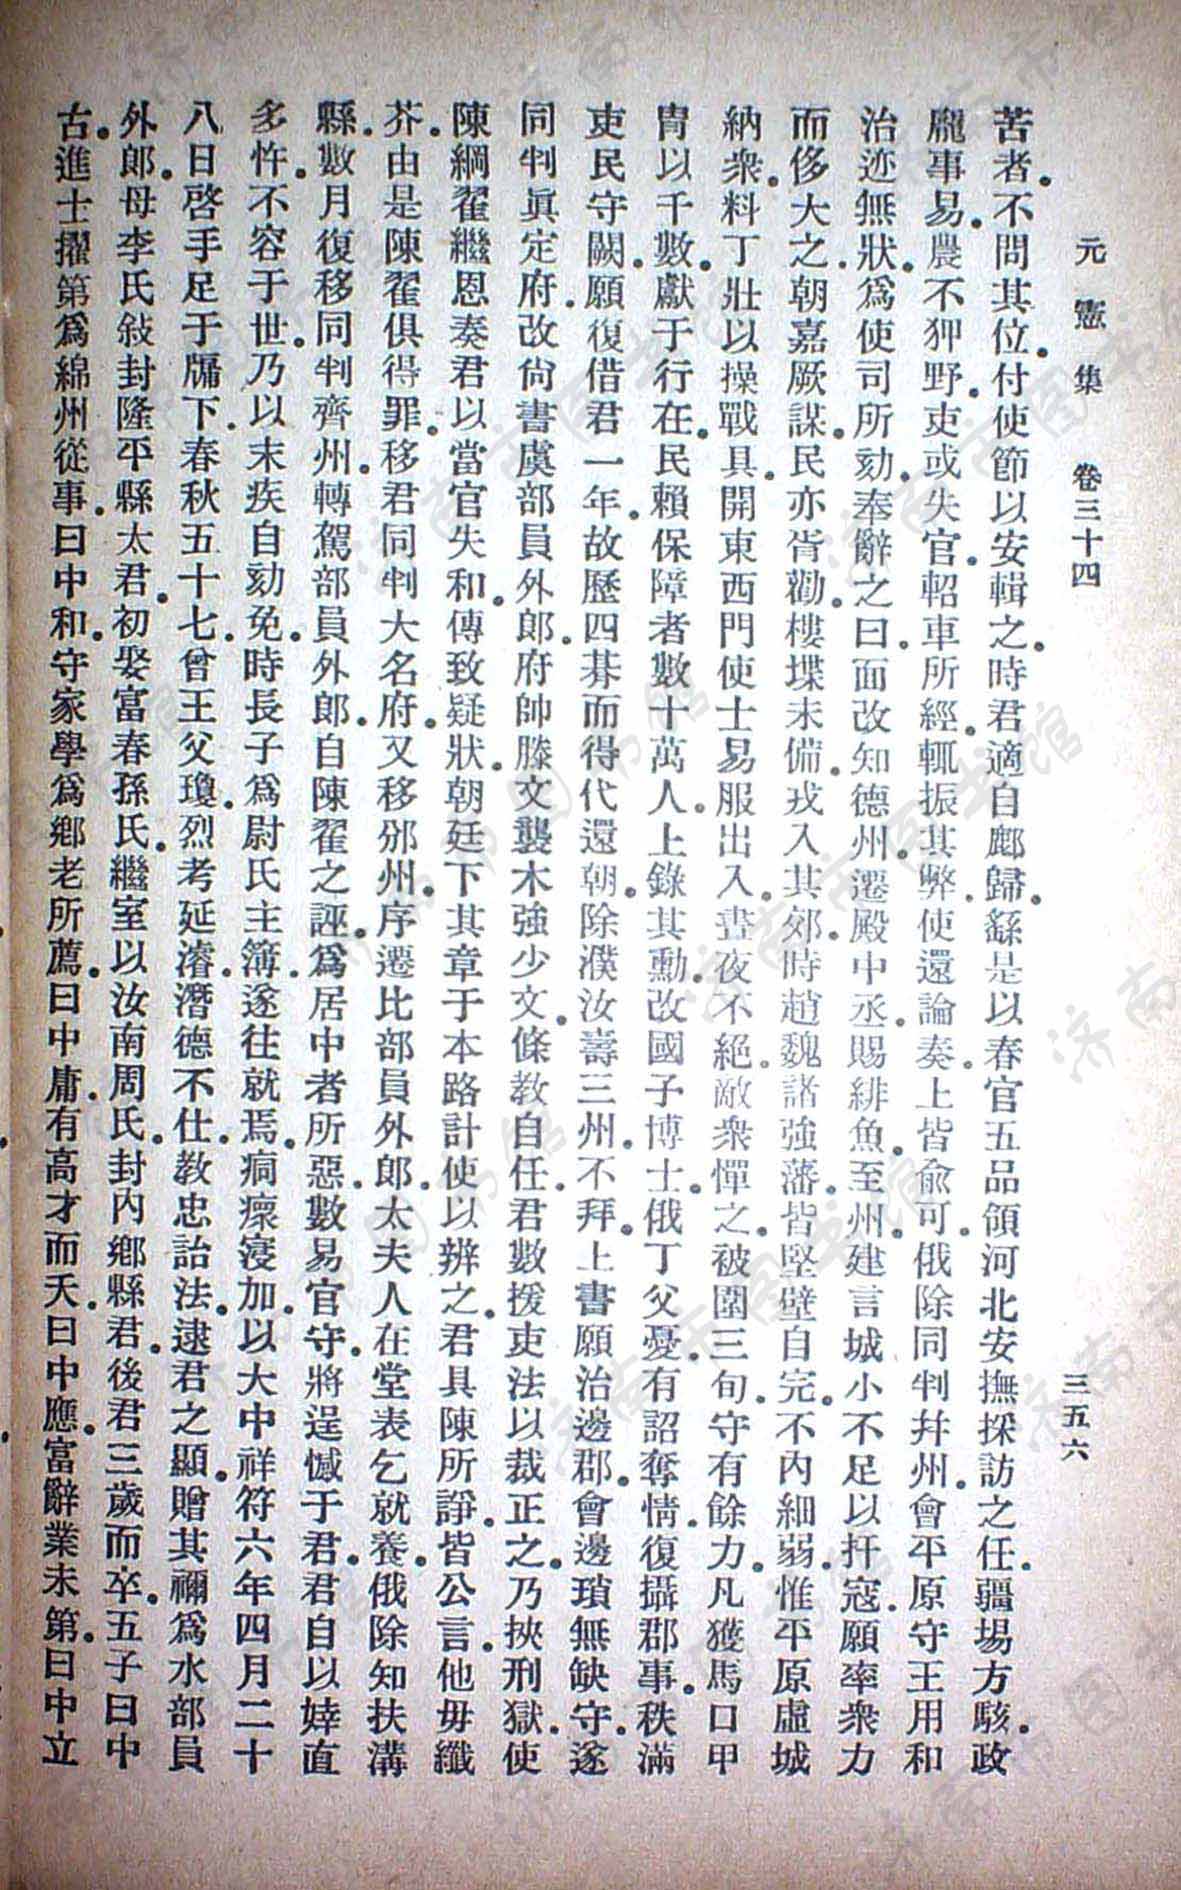 元憲集 卷三十四 三五六
苦者。不問其位。付使節以安輯之。時君適自鄜歸。繇是以春官五品領河北安撫採訪之任。疆場方駭。政
龎事易。農不狎野。吏或失官。軺車所經。輒振其弊。使還論奏。上皆俞可。俄除同判幷州。會平原守王用和
治迹無狀。爲使司所劾。奉辭之日。面改知德州。遷殿中丞。賜緋魚。至州。建言城小不足以扞寇。願率衆力
而侈大之。朝嘉厥謀。民亦胥勸。樓堞未備。戎入其郊。時趙魏諸強藩。皆堅壁自完。不內細弱。惟平原虛城
納衆。料丁壯以操戰具。開東西門使士易服出入。晝夜不絕。敵衆憚之。被圍三旬。守有餘力。凡獲馬口甲
胄以千數。獻于行在。民賴保障者數十萬人。上錄其勳。改國子博士。俄丁父憂。有詔奪情。復攝郡事。秩滿
吏民守闕。願復借君一年。故歷四朞而得代還朝。除濮汝壽三州。不拜。上書願治邊郡。會邊瑣無缺守。遂
同判眞定府。改尙書虞部員外郎。府帥滕文襲木強少文。條敎自任。君數援吏法以裁正之。乃挾刑獄。使
陳綱翟繼恩奏君以當官失和。傳致疑狀。朝廷下其章于本路計使以辨之。君具陳所諍。皆公言。他毋纖
芥。由是陳翟俱得罪。移君同判大名府。又移邠州。序遷比部員外郎。太夫人在堂。表乞就養。俄除知扶溝
縣。數月復移同判齊州。轉駕部員外郎。自陳翟之誣。爲居中者所惡。數易官守。將逞憾于君。君自以婞直
多忤。不容于世。乃以末疾自劾免。時長子爲尉氏主簿。遂往就焉。痌瘝寖加。以大中祥符六年四月二十
八日啓手足于牖下。春秋五十七。曾王父瓊。烈考延濬。潛德不仕。敎忠詒法。逮君之顯。贈其禰爲水部員
外郎。母李氏敍封隆平縣太君。初娶富春孫氏。繼室以汝南周氏。封內鄉縣君。後君三歲而卒。五子曰中
古。進士擢第爲綿州從事。曰中和。守家學爲鄉老所薦。曰中庸。有高才而夭。曰中應。富辭業未第。曰中立